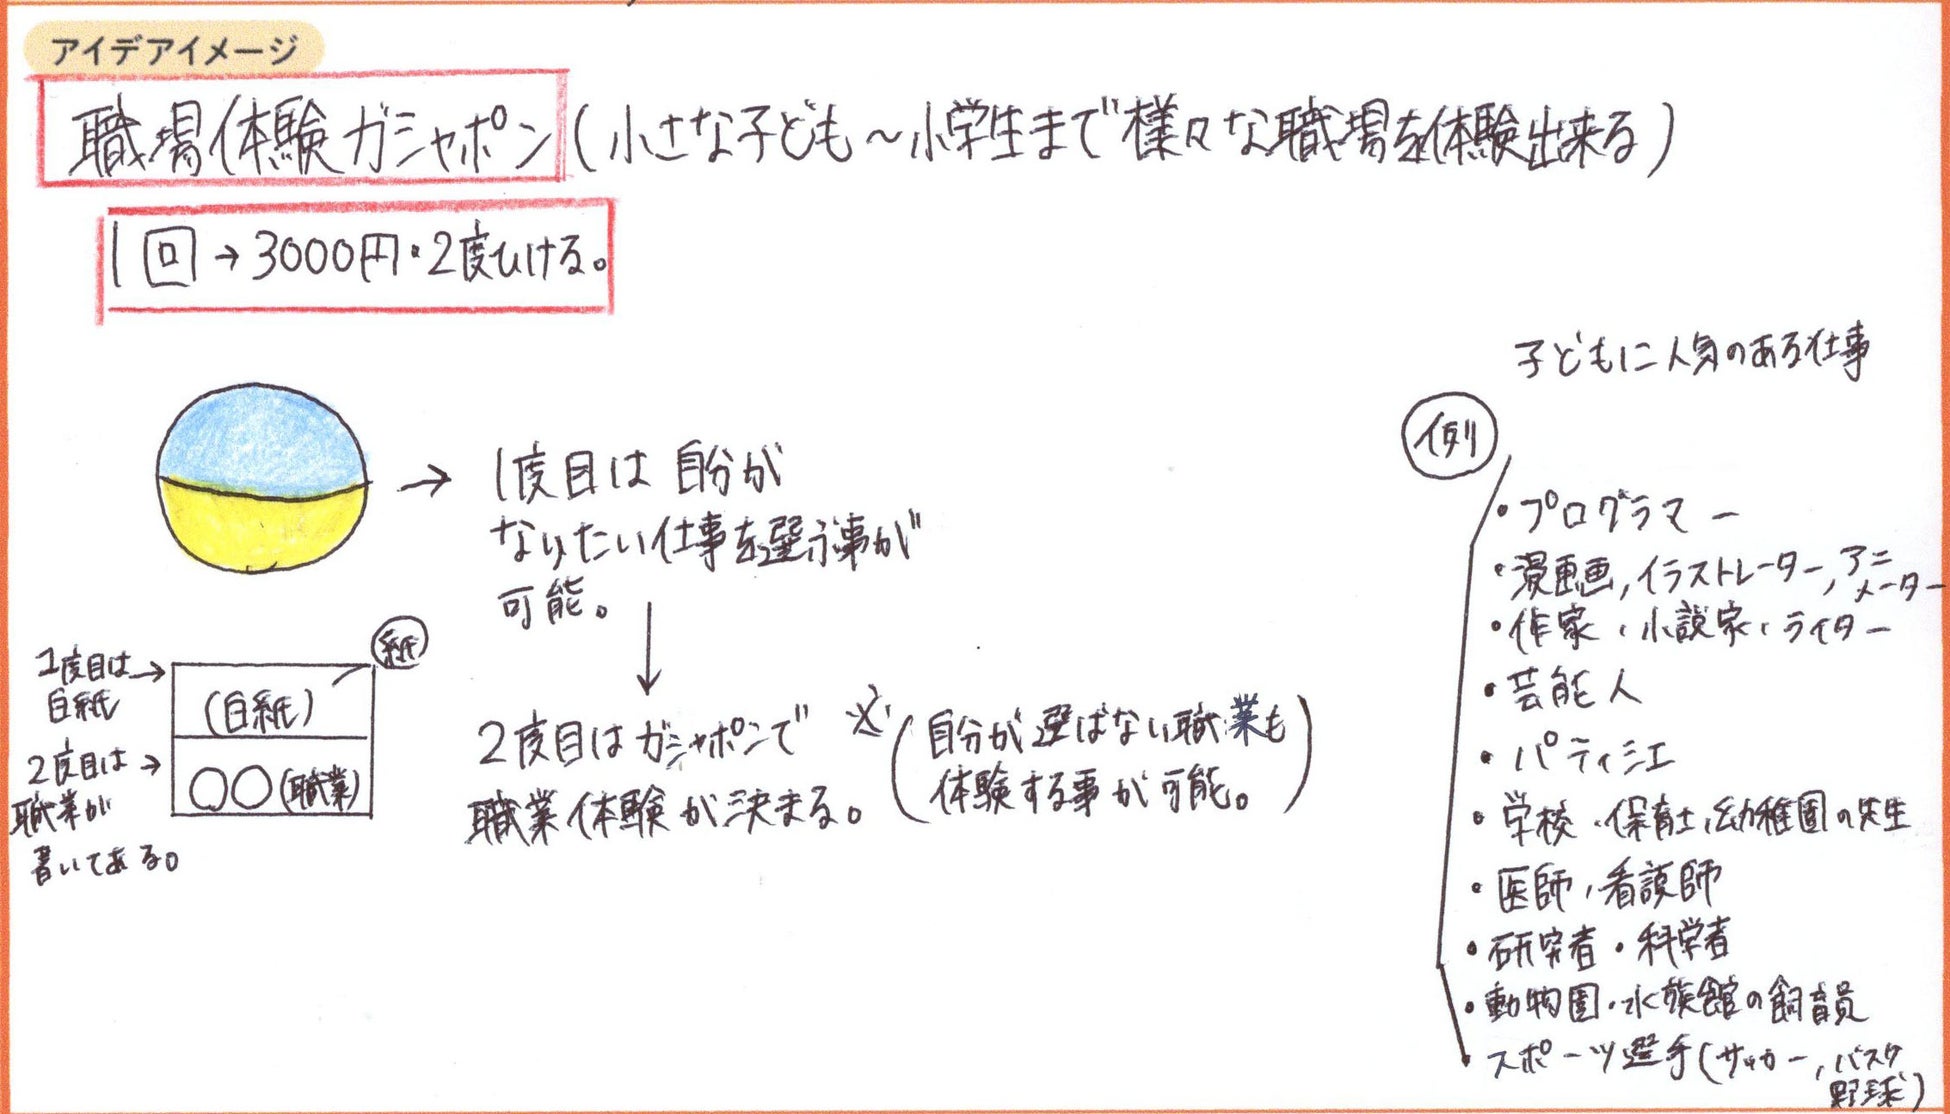 アイデアイメージ
職場体験ガシャポン(小さな子ども〜小学生まで様々な職場を体験出来る)
1回→3000円・2度ひける。
→ 1度目は自分が
なりたい仕事を選ぶ事が
可能。
↓
2度目はガシャポンで
職業体験が決まる。
※(自分が選ばない職業も
体験する事が可能。)
紙
1度目は→
白紙
(白紙)
2度目は→
職業が
書いてある。
○○(職業)
子どもに人気のある仕事
例
・プログラマー
・漫画画,イラストレーター,アニ
メーター
・作家・小説家・ライター
・芸能人
・パティシエ
・学校・保育士,幼稚園の先生
・医師,看護師
・研究者・科学者
・動物園・水族館の飼育員
・スポーツ選手(サッカー,バスケ
野球)